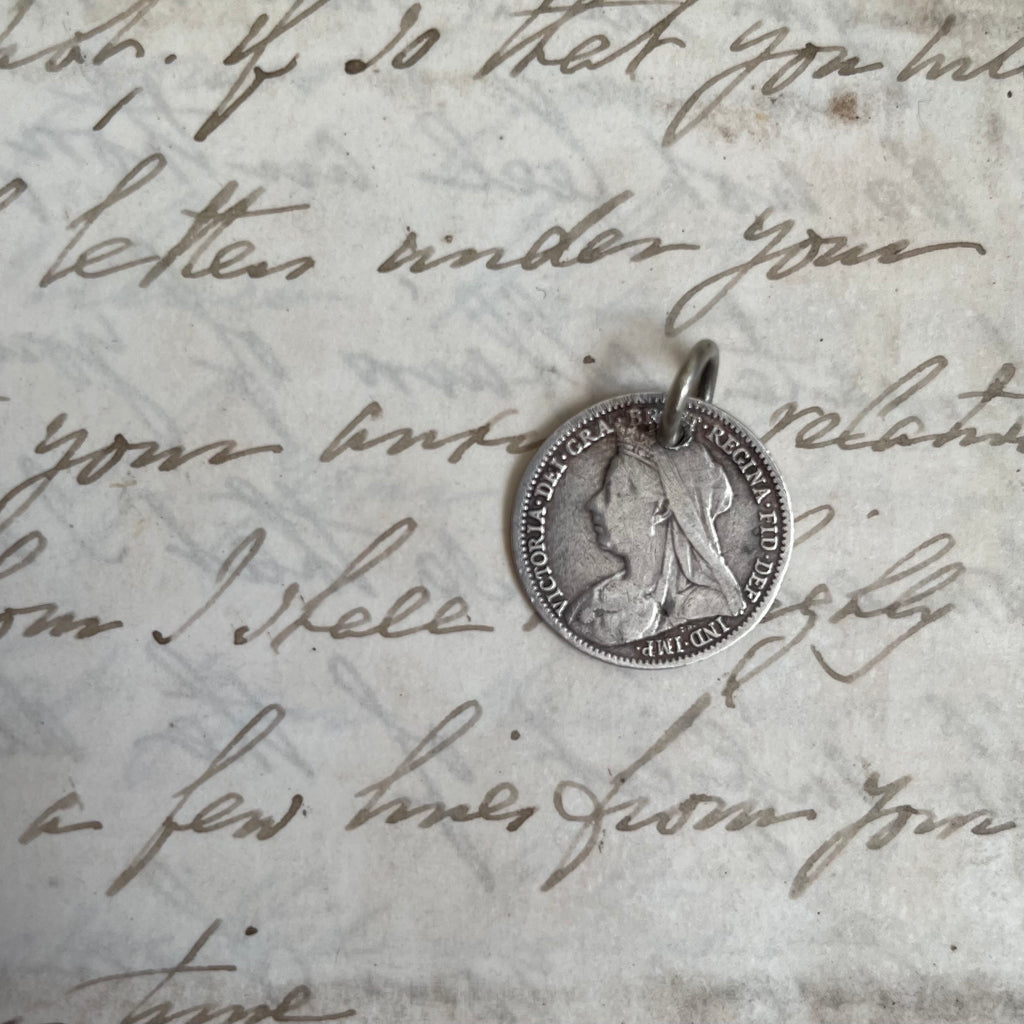 if so that you
letter under your
your relation
I shall
a few lines from your
time
VICTORIA·DEI·GRA·BRITT·REGINA·FID·DEF·IND·IMP·